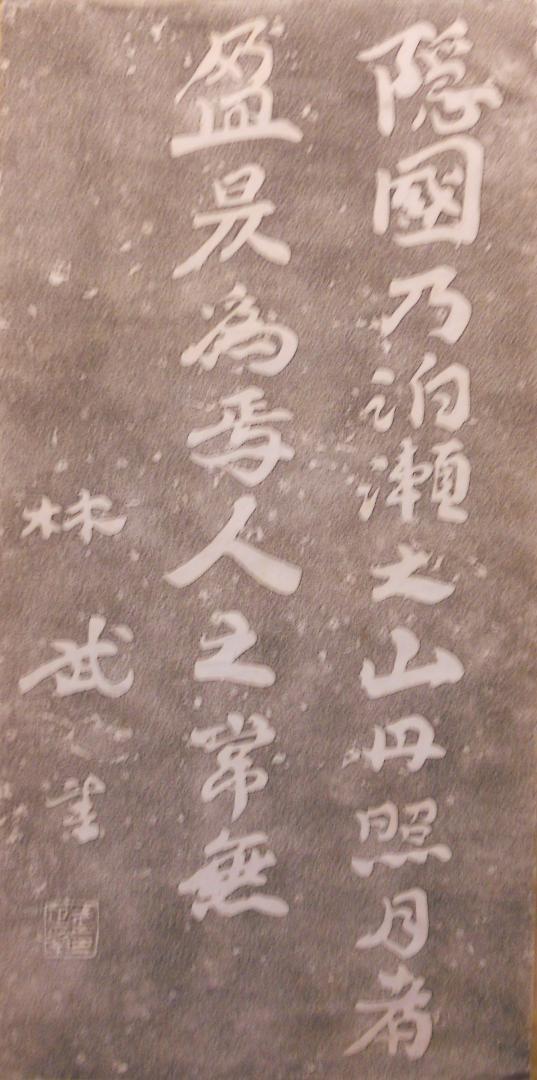 隠國乃泊瀬之山丹照月者
盈昃為焉人之常無
林武書